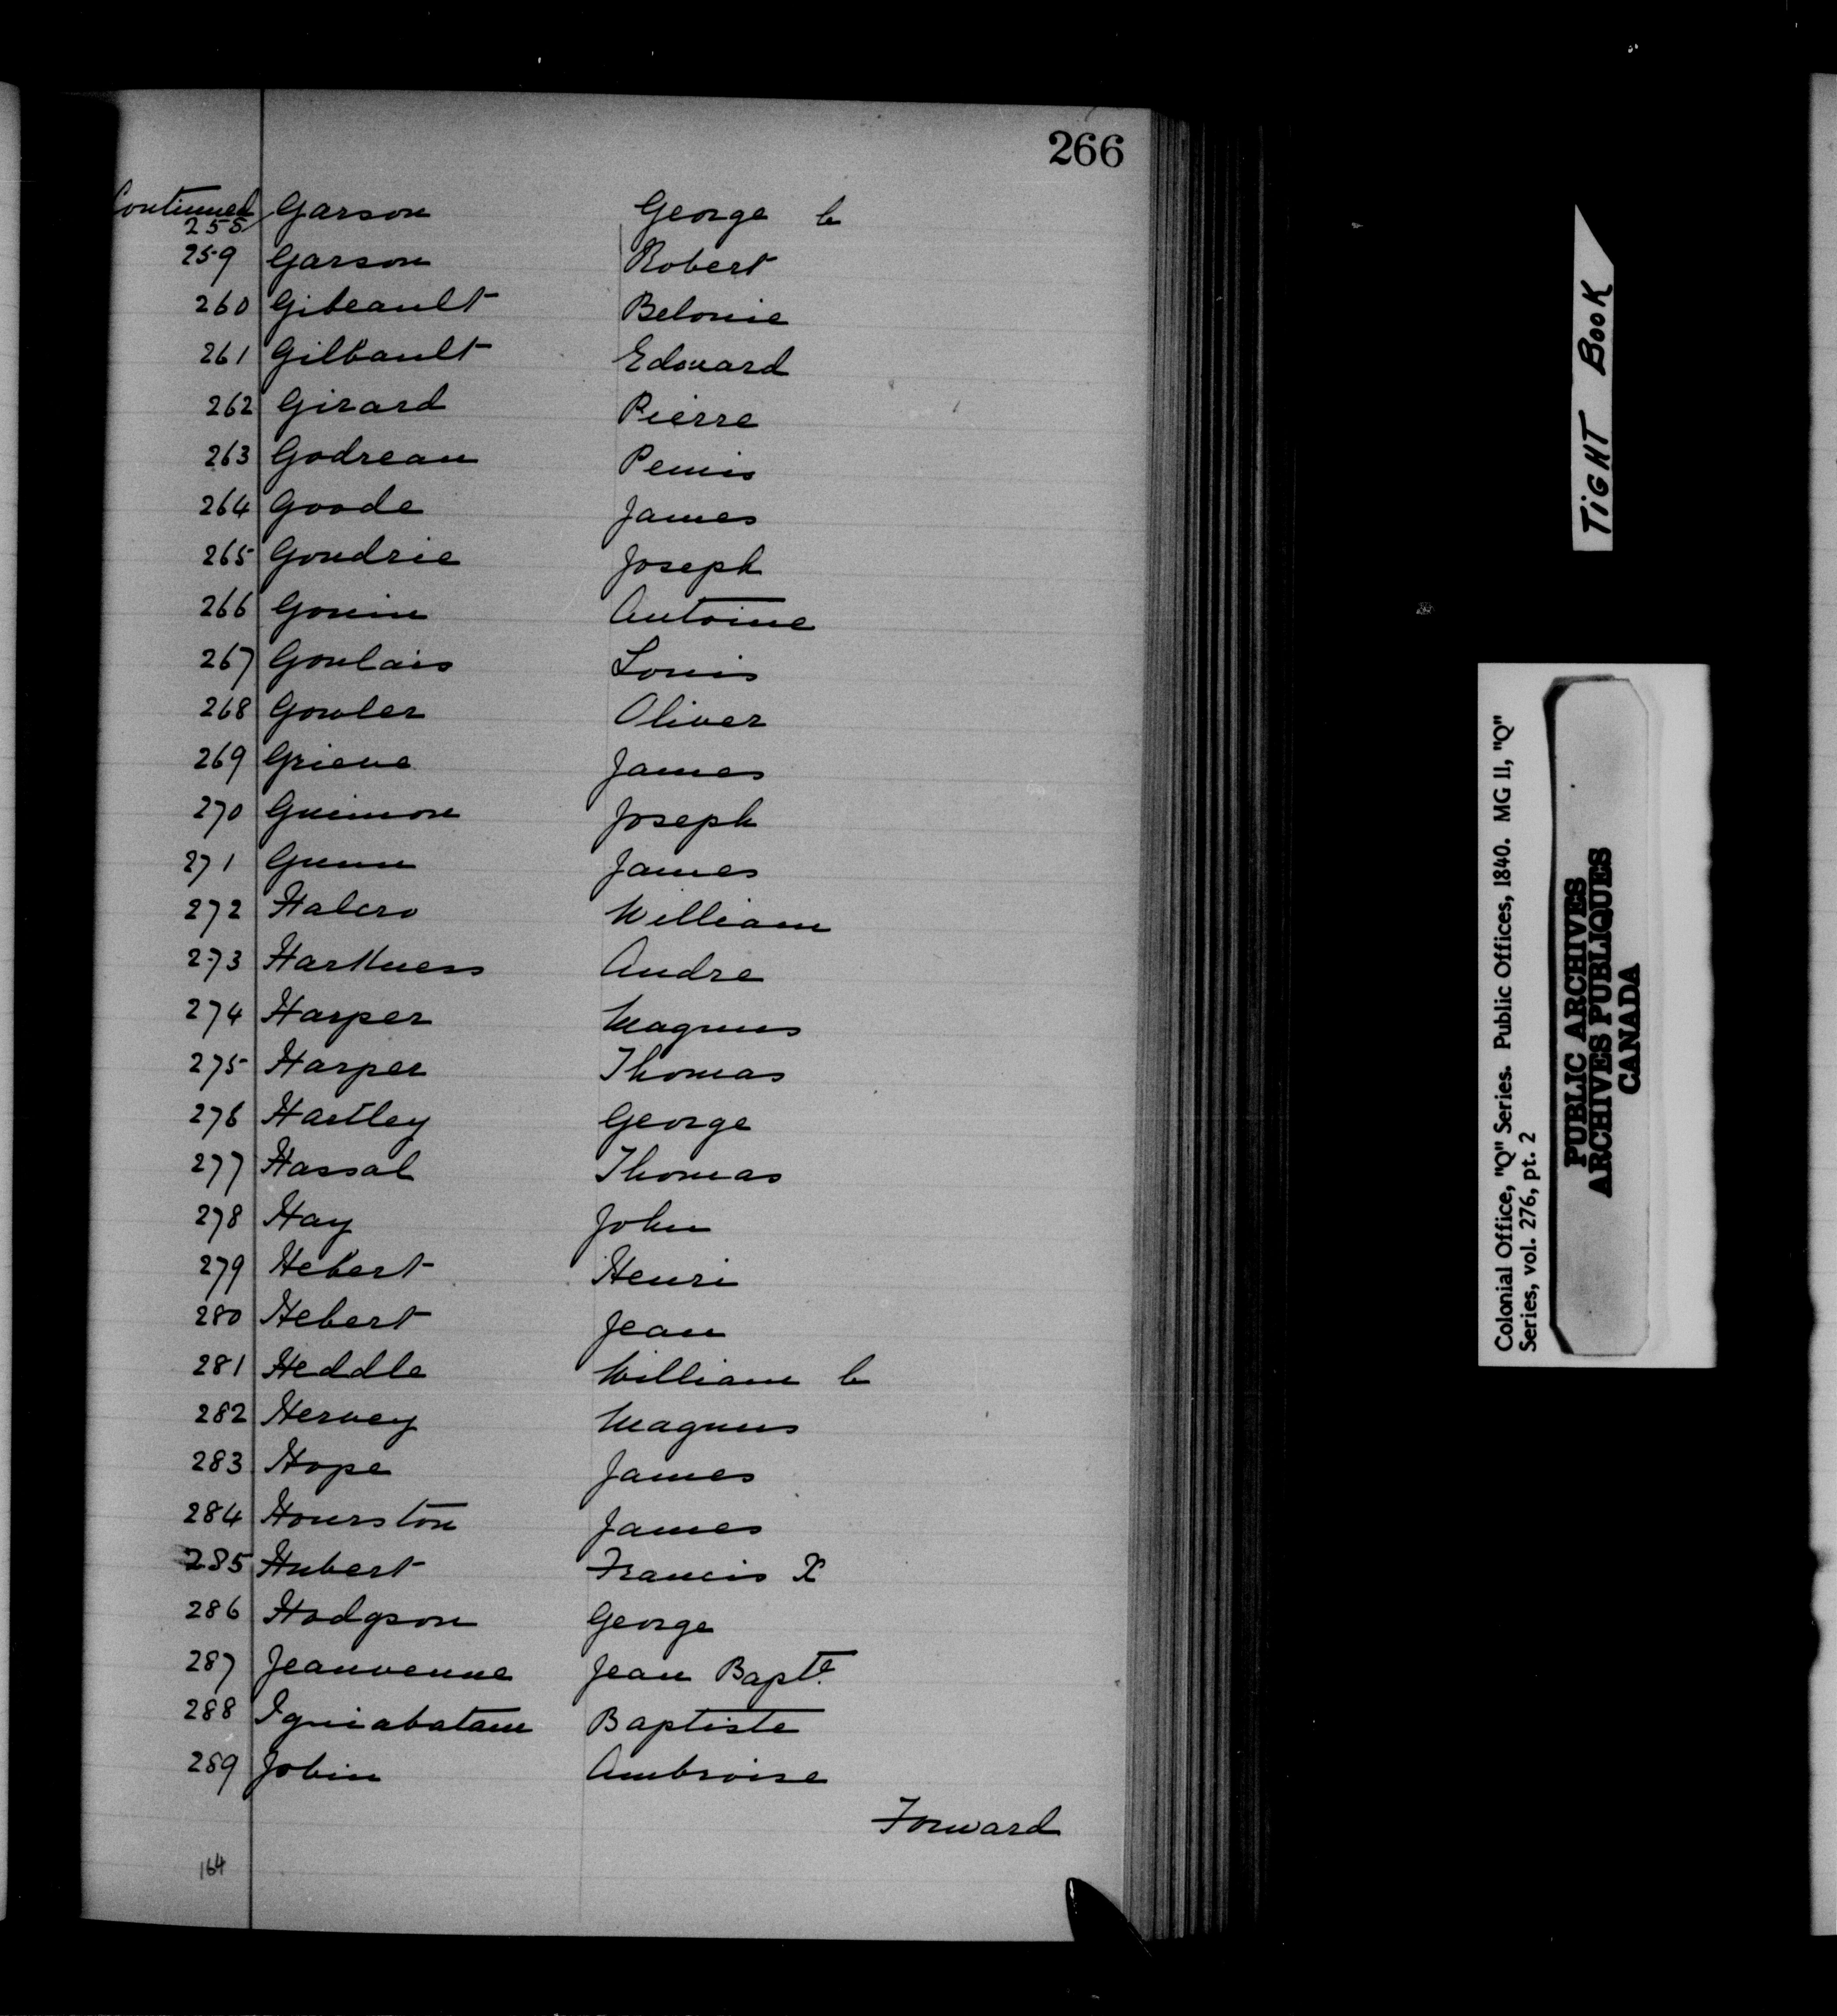 266
Continued
258 Garson George C
259 Garson Robert
260 Gibeault Belonie
261 Gilbault Edouard
262 Girard Pierre
263 Godreau Pemis
264 Goode James
265 Goudrie Joseph
266 Gouin Antoine
267 Goulais Louis
268 Gowler Oliver
269 Grieve James
270 Guimon Joseph
271 Gunn James
272 Halcro William
273 Harkness Andre
274 Harper Magnus
275 Harper Thomas
276 Hartley George
277 Hassal Thomas
278 Hay John
279 Hebert Henri
280 Hebert Jean
281 Heddle William C
282 Hervey Magnus
283 Hope James
284 Hourston James
285 Hubert Francis X
286 Hodgson George
287 Jeanvenne Jean Bapte.
288 Iguiabatam Baptiste
289 Jobin Ambroise
Forward
164
TIGHT BOOK
Colonial Office, "Q" Series. Public Offices, 1840. MG 11, "Q"
Series, vol. 276, pt. 2
PUBLIC ARCHIVES
ARCHIVES PUBLIQUES
CANADA